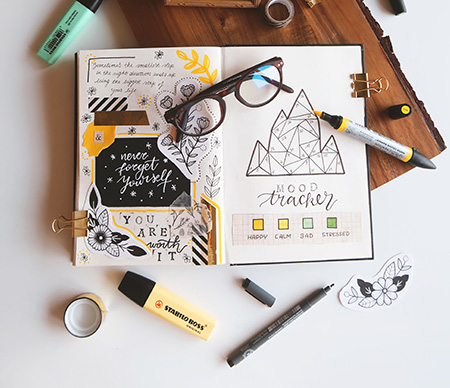 Sometimes the smallest step
in the right direction ends up
being the biggest step of
your life
&
never
forget
yourself
YOU
ARE
worth
IT
MOOD
tracker
HAPPY CALM SAD STRESSED
STABILO BOSS